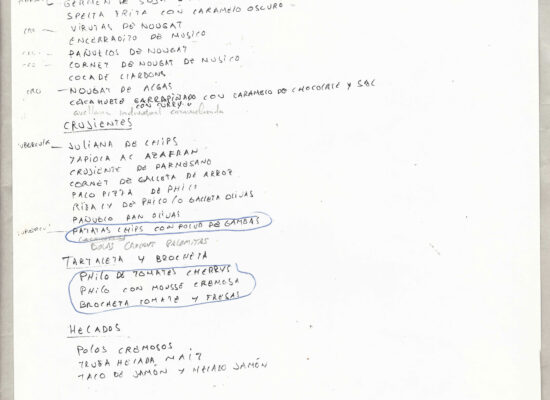 GERMEN DE SOJA
SPEITA FRITA CON CARAMELO OSCURO
CRO - VIRUTAS DE NOUGAT
ENCERRADITO DE MUSICO
PAÑUELOS DE NOUGAT
CORNET DE NOUGAT DE MUSICO
COCA DE LLARDONS
CRO - NOUGAT DE ALGAS
CACAHUETE GARRAPIÑADO CON CARAMELO DE CHOCOLATE Y SAL
CON CURRY
avellana individual caramelizada
CRUJIENTES
JULIANA DE CHIPS
TAPIOCA AC AZAFRAN
CRUJIENTE DE PARMESANO
CORNET DE GALLETA DE ARROZ
PALO PIZZA DE PHILO
DE PHILO/O GALLETA OLIVAS
PAÑUELO PAN OLIVAS
PATATAS CHIPS CON POLVO DE GAMBAS
PALOMITAS
TARTALETA Y BROCHETA
PHILO DE TOMATES CHERRYS
PHILO CON MOUSSE CREMOSA
BROCHETA TOMATE Y FRESAS
HELADOS
POLOS CREMOSOS
TRUFA HELADA MAIZ
TACO DE JAMÓN Y HELADO JAMÓN